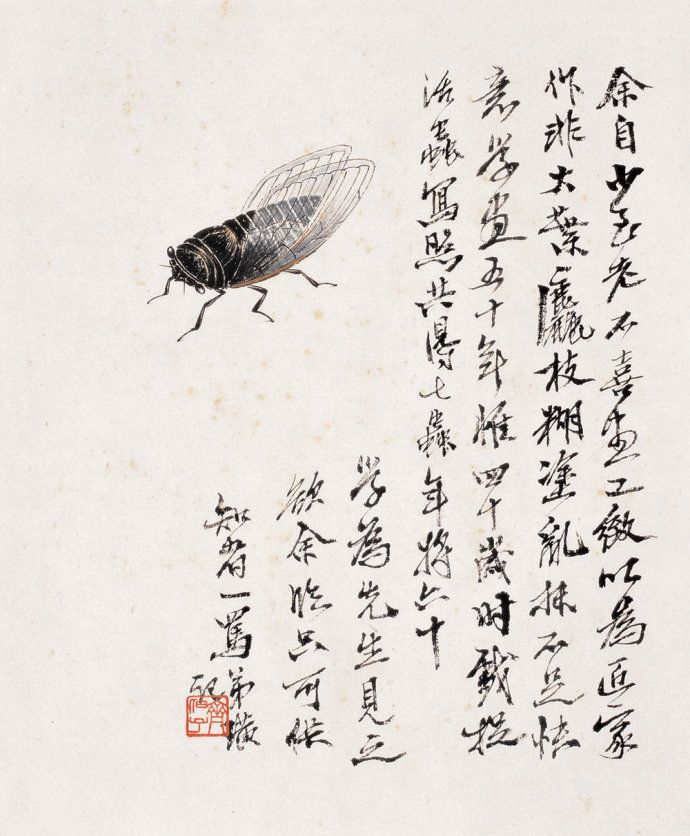 余自少至老不喜画工致以为匠家
作非大叶粗枝糊涂乱抹不足快
意学画五十年惟四十岁时戏捉
活虫写照共得七虫年将六十
学为先生见之
欲余临只可供
知者一骂弟璜
记